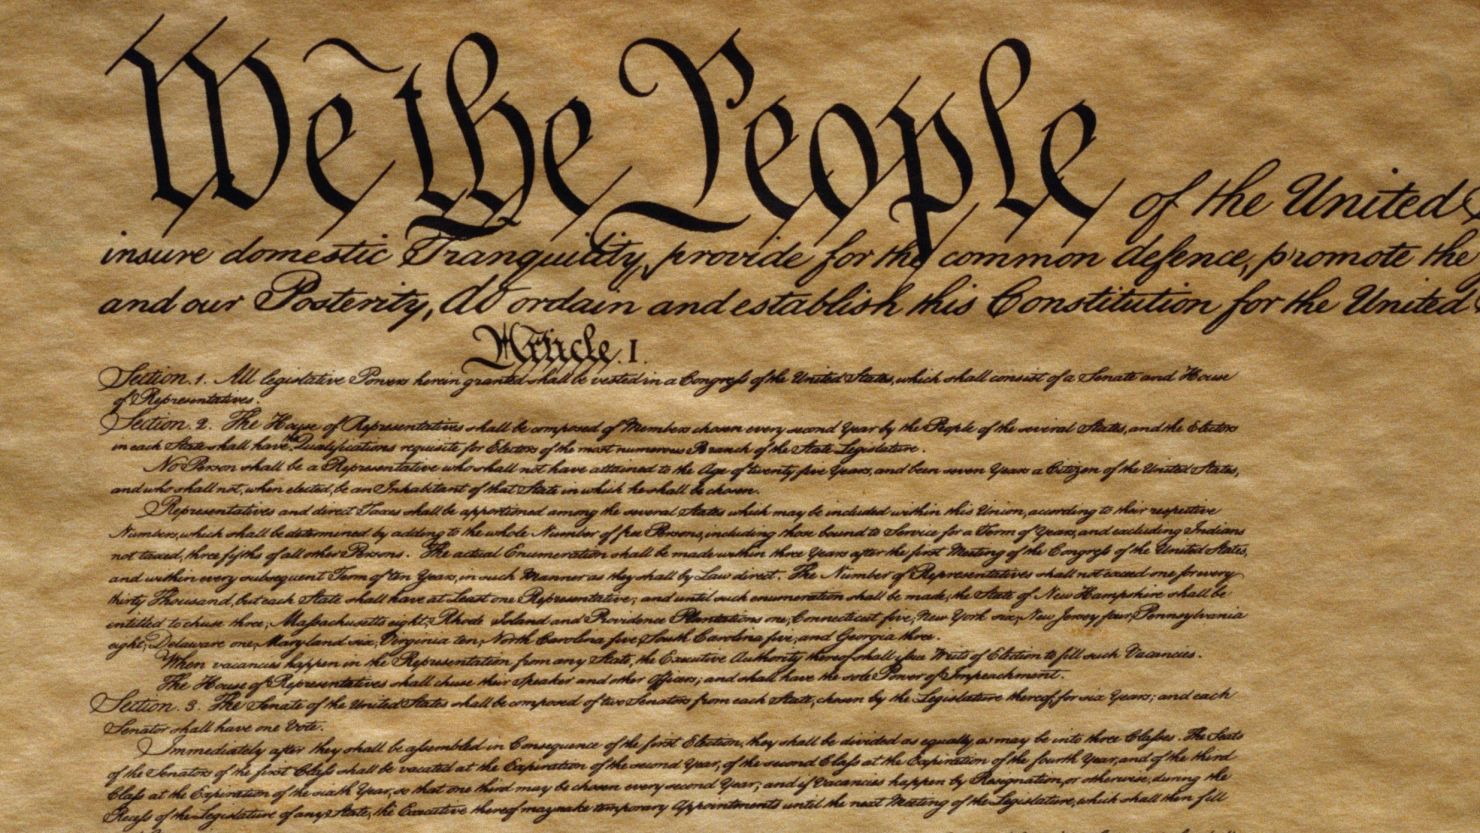 We the People of the United
insure domestic Tranquility, provide for the common defence, promote the
and our Posterity, do ordain and establish this Constitution for the United
Article. I.
Section. 1. All legislative Powers herein granted shall be vested in a Congress of the United States, which shall consist of a Senate and House
of Representatives.
Section. 2. The House of Representatives shall be composed of Members chosen every second Year by the People of the several States, and the Electors
in each State shall have the Qualifications requisite for Electors of the most numerous Branch of the State Legislature.
No Person shall be a Representative who shall not have attained to the Age of twenty five Years, and been seven Years a Citizen of the United States,
and who shall not, when elected, be an Inhabitant of that State in which he shall be chosen.
Representatives and direct Taxes shall be apportioned among the several States which may be included within this Union, according to their respective
Numbers, which shall be determined by adding to the whole Number of free Persons, including those bound to Service for a Term of Years, and excluding Indians
not taxed, three fifths of all other Persons. The actual Enumeration shall be made within three Years after the first Meeting of the Congress of the United States,
and within every subsequent Term of ten Years, in such Manner as they shall by Law direct. The Number of Representatives shall not exceed one for every
thirty Thousand, but each State shall have at Least one Representative; and until such enumeration shall be made, the State of New Hampshire shall be
entitled to chuse three, Massachusetts eight, Rhode Island and Providence Plantations one, Connecticut five, New York six, New Jersey four, Pennsylvania
eight, Delaware one, Maryland six, Virginia ten, North Carolina five, South Carolina five, and Georgia three.
When vacancies happen in the Representation from any State, the Executive Authority thereof shall issue Writs of Election to fill such Vacancies.
The House of Representatives shall chuse their Speaker and other Officers; and shall have the sole Power of Impeachment.
Section. 3. The Senate of the United States shall be composed of two Senators from each State, chosen by the Legislature thereof, for six Years; and each
Senator shall have one Vote.
Immediately after they shall be assembled in Consequence of the first Election, they shall be divided as equally as may be into three Classes. The Seats
of the Senators of the first Class shall be vacated at the Expiration of the second Year, of the second Class at the Expiration of the fourth Year, and of the third
Class at the Expiration of the sixth Year, so that one third may be chosen every second Year; and if Vacancies happen by Resignation, or otherwise, during the
Recess of the Legislature of any State, the Executive thereof may make temporary Appointments until the next Meeting of the Legislature, which shall then fill